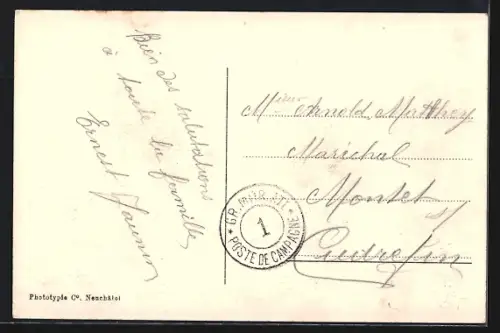 Bien des salutations
à toute la famille
Ernest Jaunin
Msieur Arnold Matthey
Maréchal
Montet s/
Cudrefin
1
* POSTE DE CAMPAGNE *
Phototypie Co. Neuchâtel